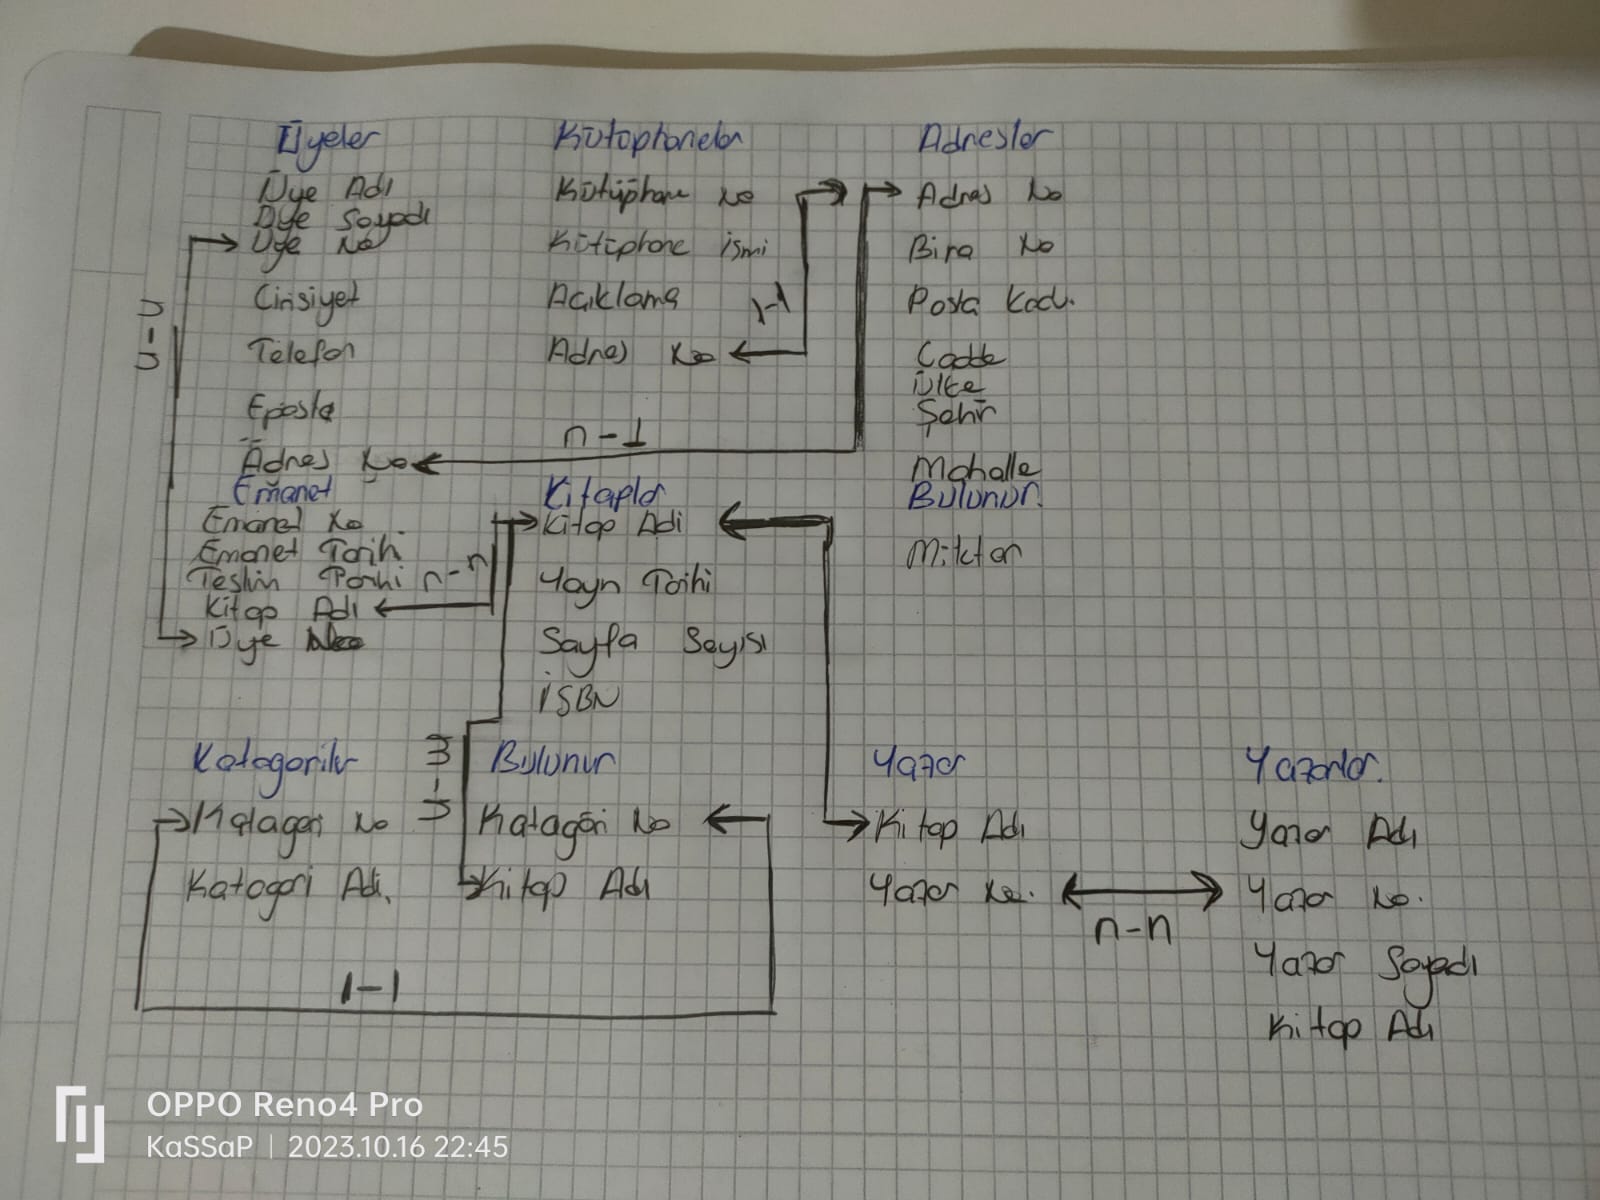 Üyeler
Üye Adı
Üye Soyadı
Üye No
Cinsiyet
Telefon
Eposta
Adres No
Kütüphaneler
Kütüphane No
Kütüphane ismi
Açıklama
Adres No
1-1
n-1
Adresler
Adres No
Bina No
Posta Kodu.
Cadde
Ülke
Şehir
Mahalle
Bulunur.
Miktar
n-n
Emanet
Emanet No
Emanet Tarihi
Teslim Tarihi
Kitap Adı
Üye No
n-n
Kitaplar
Kitap Adi
Yayın Tarihi
Sayfa Sayısı
İSBN
Katagoriler
Katagori No
Katagori Adı.
1-1
Bulunur
Katagöri No
Kitap Adı
Yazar
Kitap Adı
Yazar No.
n-n
Yazarlar.
Yazar Adı
Yazar No.
Yazar Soyadı
Kitap Adı
OPPO Reno4 Pro
KaSSaP | 2023.10.16 22:45